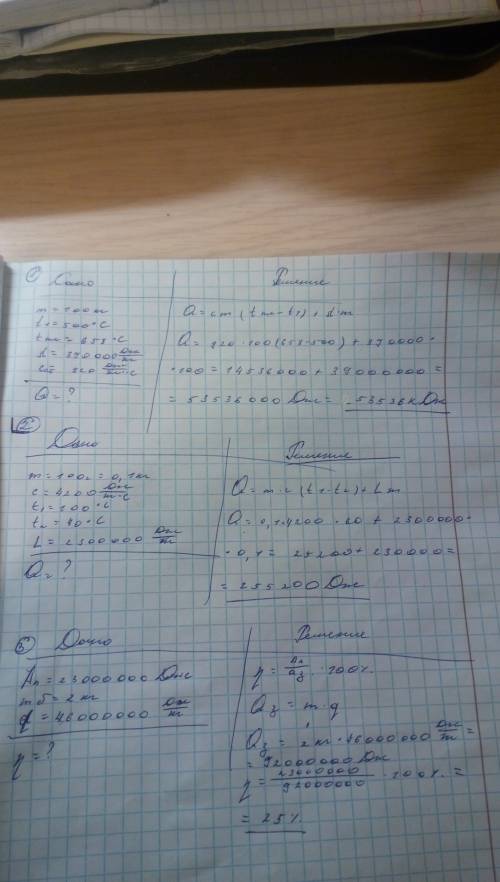 ① Дано
m = 100 кг
t₁ = 500°C
tпл = 658°C
λ = 390000 Дж/кг
Cал 920 Дж/кг·°C
Q = ?
Решение
Q = cm (tпл - t₁) + λ·m
Q = 920 · 100 (658-500) + 390000 ·
· 100 = 14536000 + 39000000 =
= 53536000 Дж = 53536 кДж
② Дано
m = 100г = 0,1 кг
c = 4200 Дж/кг·°C
t₁ = 100°C
L = 2300000 Дж/кг
Q = ?
Решение
Q = m·c (t₁-t₂) + Lm
+ 2300000 ·
· 0,1 = 25200 + 230000 =
= 255200 Дж
③ Дано
Aп = 23000000 Дж
mб = 2 кг
q = 46000000 Дж/кг
η = ?
Решение
η = Aп/Qз · 100%
Qз = m·q
Qз = 2 кг · 46000000 Дж/кг =
= 92000000 Дж
η = 23000000/92000000 · 100% =
= 25%